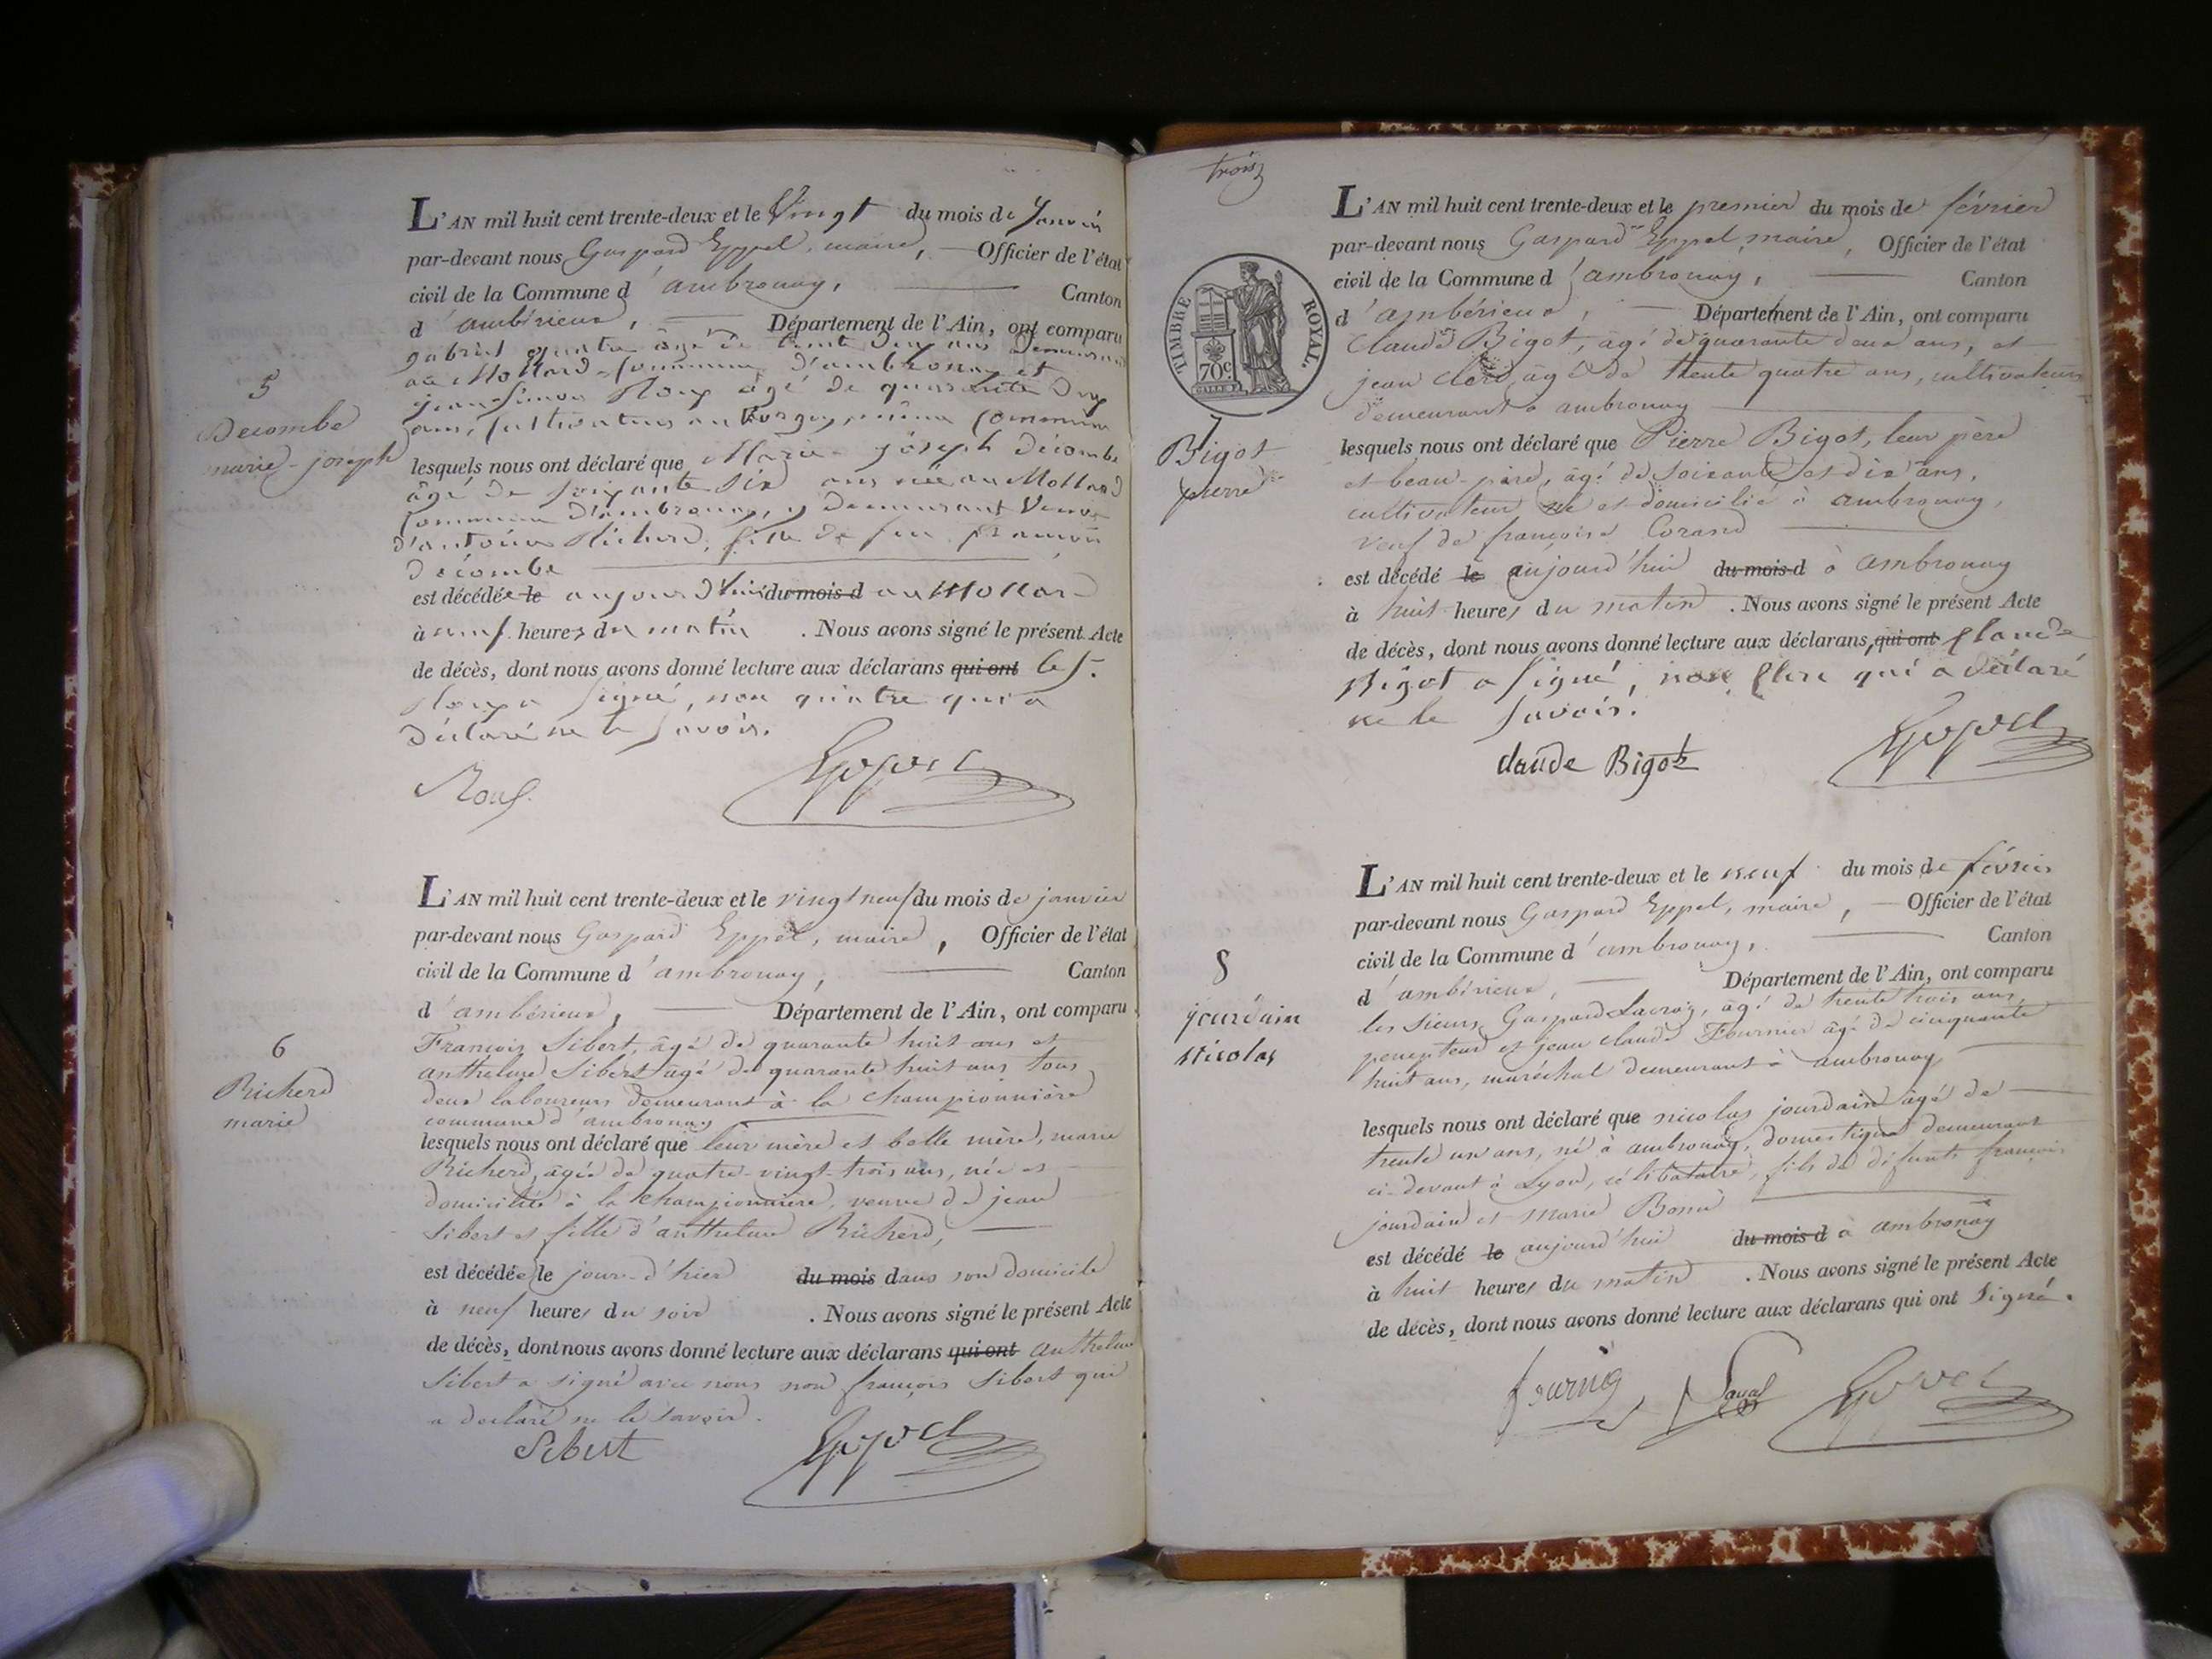 L'AN mil huit cent trente-deux et le Vingt du mois de Janvier
par-devant nous Gaspard Eppel, maire, Officier de l'état
civil de la Commune d'ambronay, Canton
d'ambérieux, Département de l'Ain, ont comparu
gabriel quatre âgé de trente deux ans Demeurant
au Mollard, Commune d'ambronay et
jean-Simon Roux âgé de quarante Deux
ans, Cultivateurs même Commune
5
Decombe
marie-joseph
lesquels nous ont déclaré que Marie-Joseph Décombe
âgé de soixante Six ans née au Mollard
Commune d'ambronay, y Demeurant Veuve
d'antoine Richerd, fille de feu
Décombe
est décédée le aujourd'hui du mois d au Mollard
à neuf heures du matin. Nous avons signé le présent Acte
de décès, dont nous avons donné lecture aux déclarans qui ont le S.
Roux a Signé, non quatre qui a
Déclaré ne le Savoir.
Roux
Eppel
L'AN mil huit cent trente-deux et le vingt neuf du mois de janvier
par-devant nous Gaspard Eppel, maire, Officier de l'état
civil de la Commune d'ambronay, Canton
d'ambérieux, Département de l'Ain, ont comparu
François Sibert, âgé de quarante huit ans et
anthelme Sibert âgé de quarante huit ans tous
deux laboureurs demeurant à la Championnière
commune d'ambronay
6
Richerd
marie
lesquels nous ont déclaré que leur mère et belle mère, marie
Richerd, âgée de quatre-vingt-trois ans, née et
domiciliée à la Championnière, veuve de jean
Sibert et fille d'anthelme Richerd,
est décédée le jour-d'hier du mois dans son domicile
à neuf heures du soir. Nous avons signé le présent Acte
de décès, dont nous avons donné lecture aux déclarans qui ont anthelme
Sibert a signé avec nous non françois Sibert qui
a declaré ne le savoir.
Sibert
Eppel
trois
TIMBRE ROYAL.
70c
L'AN mil huit cent trente-deux et le premier du mois de février
par-devant nous Gaspard Eppel, maire, Officier de l'état
civil de la Commune d'ambronay, Canton
d'ambérieux, Département de l'Ain, ont comparu
Claude Bigot, âgé de quarante deux ans, et
jean Clerc, âgé de trente quatre ans, cultivateurs
demeurant à ambronay
7
Bigot
pierre
lesquels nous ont déclaré que Pierre Bigot, leur père
et beau-père, âgé de soixante et dix ans,
cultivateur né et domicilié à ambronay,
veuf de françoise Corand
est décédé le aujourd'hui du mois d à ambronay
à huit heures du matin. Nous avons signé le présent Acte
de décès, dont nous avons donné lecture aux déclarans, qui ont Claude
Bigot a signé, non Clerc qui a déclaré
ne le savoir.
claude Bigot
Eppel
L'AN mil huit cent trente-deux et le neuf du mois de février
par-devant nous Gaspard Eppel, maire, Officier de l'état
civil de la Commune d'ambronay, Canton
d'ambérieux, Département de l'Ain, ont comparu
les sieurs Gaspard, âgé de trente trois ans,
percepteur et jean claude Fournier âgé de cinquante
huit ans, maréchal demeurant à ambronay
8
jourdain
Nicolas
lesquels nous ont déclaré que nicolas jourdain âgé de
trente un ans, né à ambronay, domestique demeurant
ci-devant à Lyon, célibataire, fils de défunts françois
jourdain et marie
est décédé le aujourd'hui du mois d à ambronay
à huit heures du matin. Nous avons signé le présent Acte
de décès, dont nous avons donné lecture aux déclarans qui ont signé.
Eppel